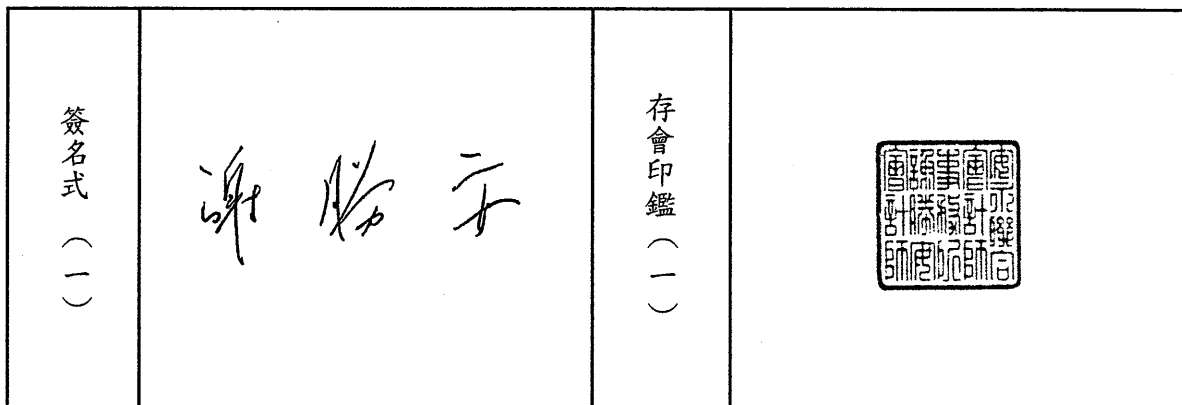 簽名式（一）
謝勝安
存會印鑑（一）
安永聯合
會計師
事務所
謝勝安
會計師